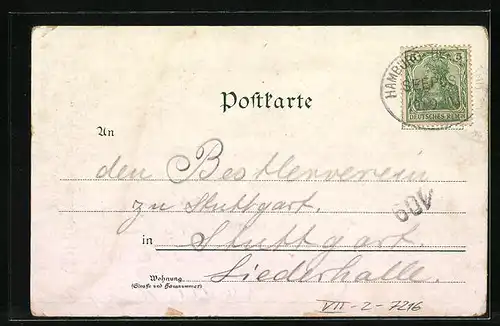 HAMBURG
SEEP
5
DEUTSCHES REICH
Postkarte
An
den Bestlerverein
zu Stuttgart.
109
in Stuttgart.
Liederhalle.
Wohnung
(Straße und Hausnummer)
VII-2-7216